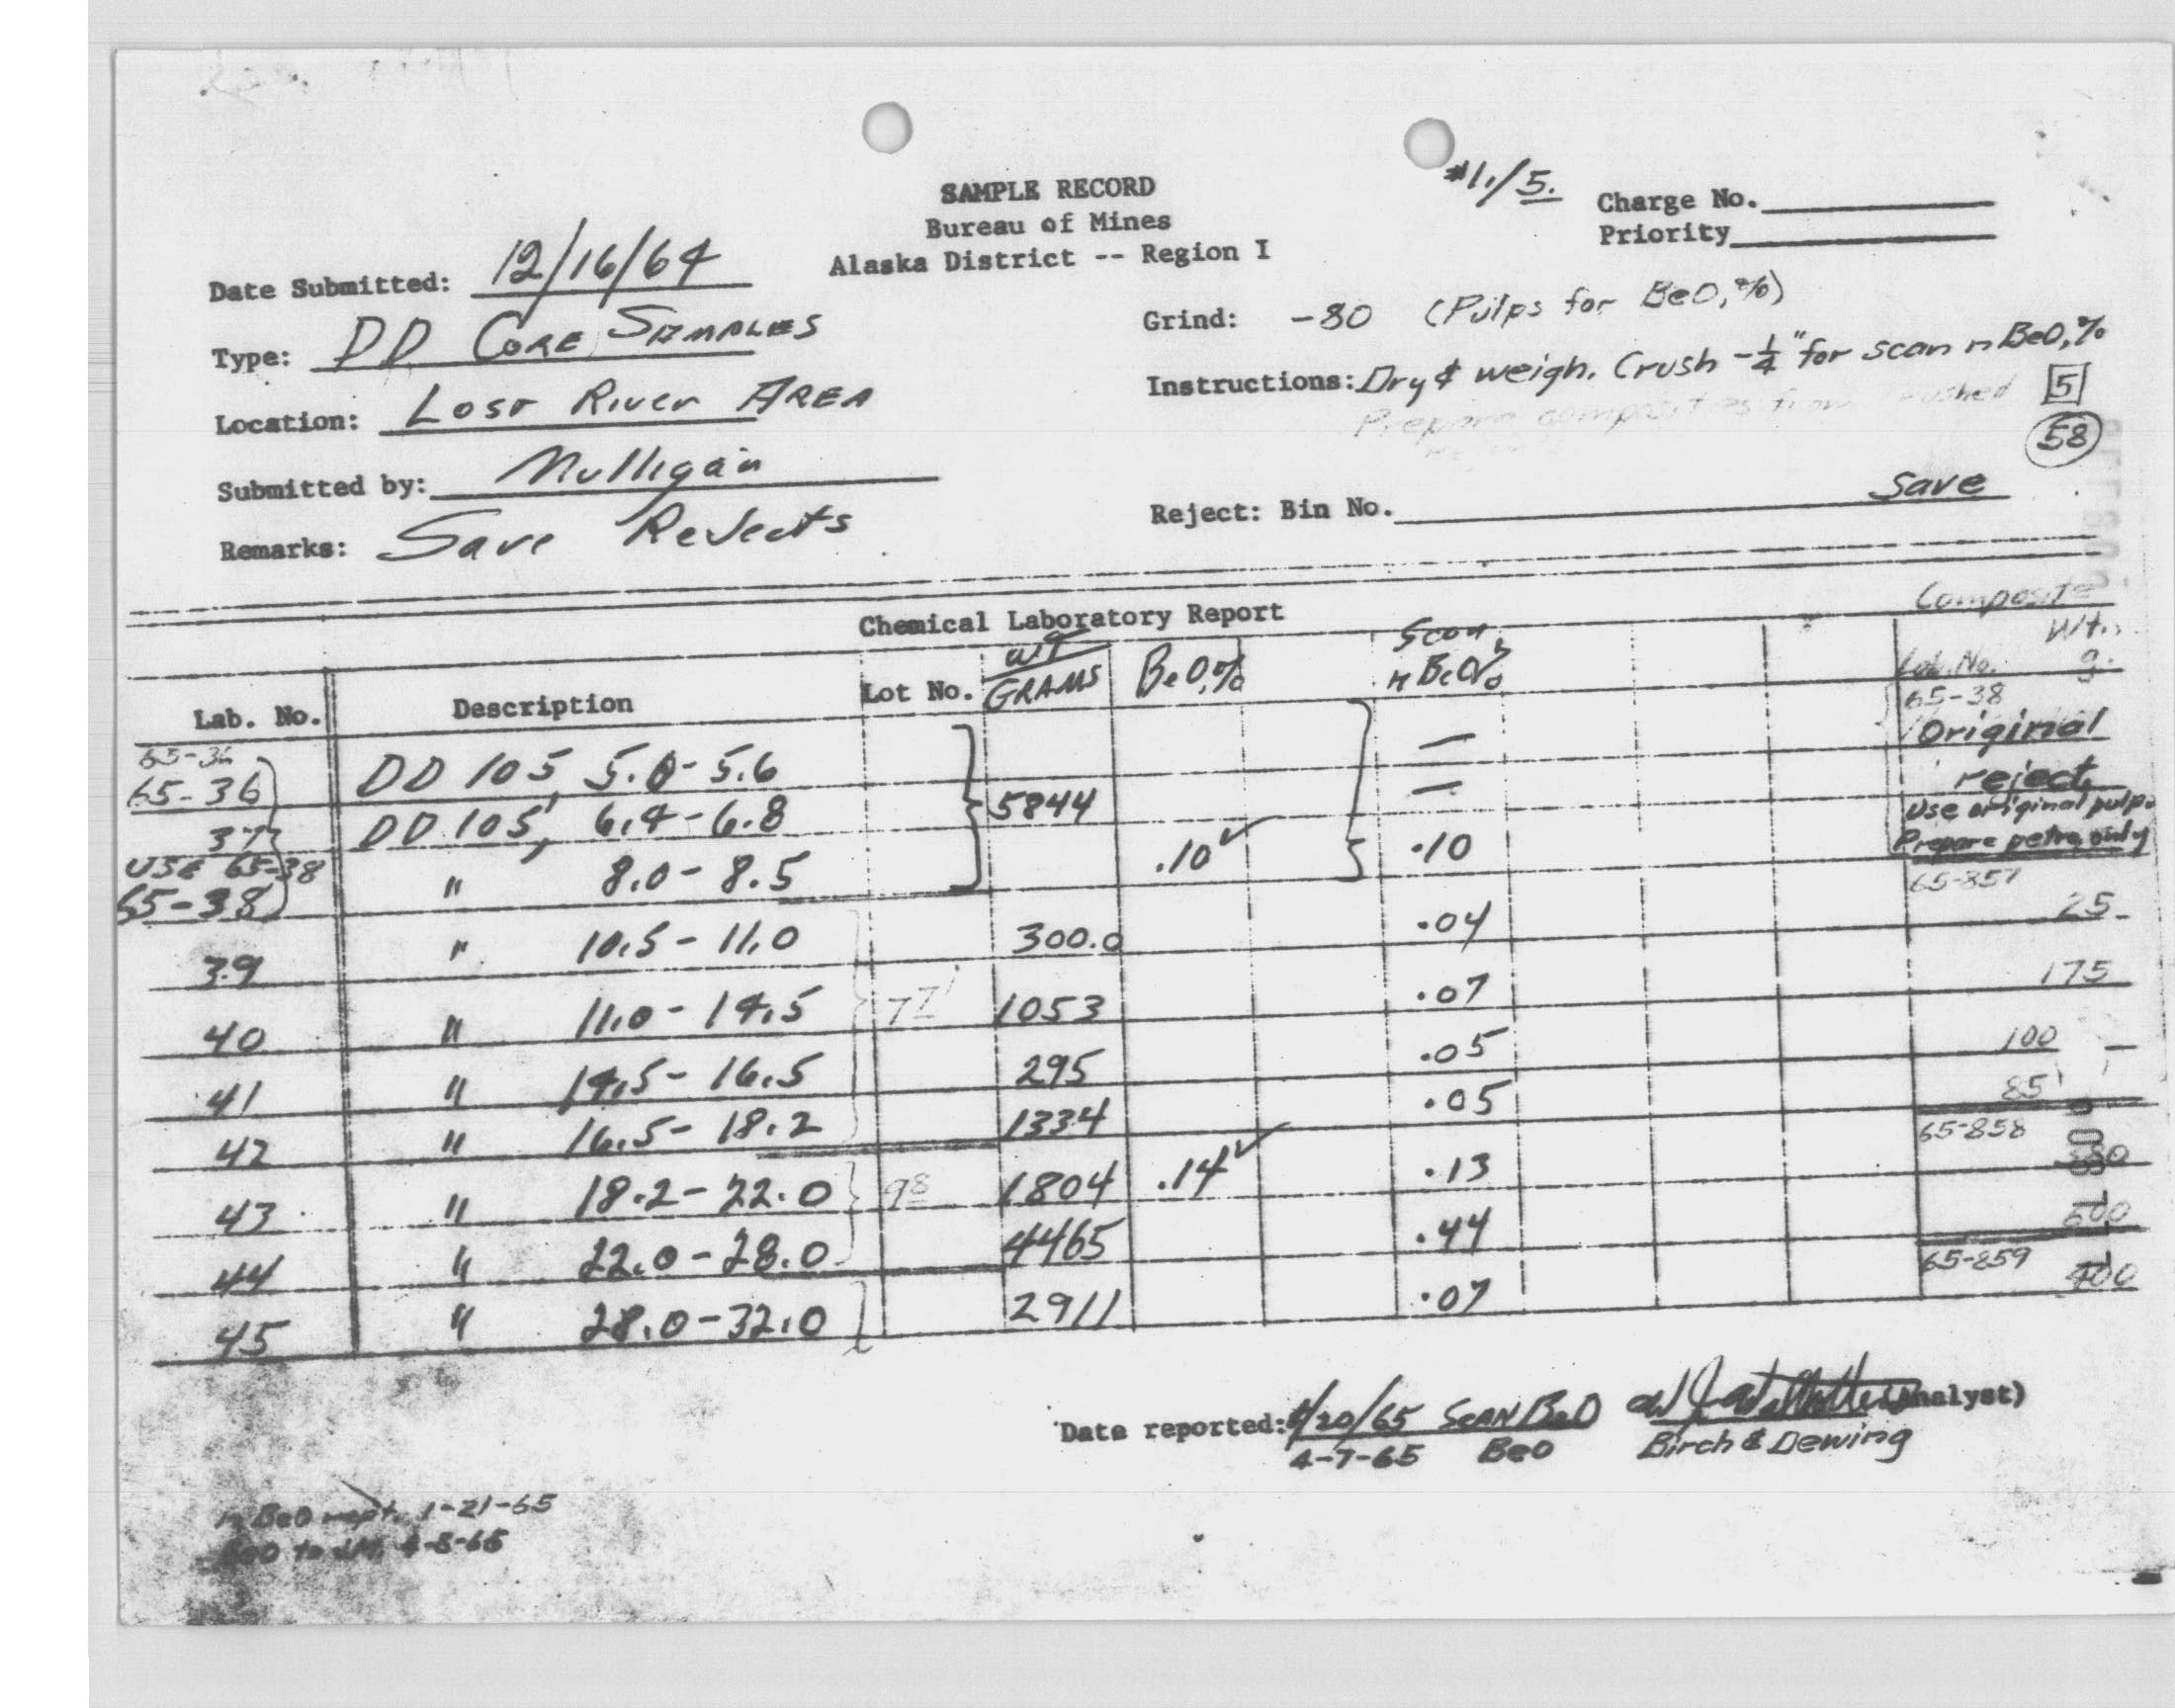 #1./5.
SAMPLE RECORD
Bureau of Mines
Alaska District -- Region I
Charge No.
Priority
Date Submitted: 12/16/64
Type: DD CORE SAMPLES
Location: Lost River AREA
Submitted by: Mulligan
Remarks: Save Rejects
Grind: -80 (Pulps for BeO,%)
Instructions: Dry & weigh. Crush -1/4" for scan n BeO,%
Prepare composites from crushed
5
58
Reject: Bin No. Save
Chemical Laboratory Report
Composite
Lab. No. Description Lot No. wt GRAMS BeO,% Scan n BeO% Lab. No. Wt., g.
65-36 65-38
65-36 DD 105, 5.0-5.6 — Original
37 DD 105, 6.4-6.8 5844 — reject
Use original pulp.
Prepare petro only
USE 65-38
65-38 " 8.0-8.5 .10✓ .10
65-857
39 " 10.5-11.0 300.0 .04 25
40 " 11.0-14.5 7 7 1053 .07 175
41 " 14.5-16.5 295 .05 100
42 " 16.5-18.2 1334 .05 85
65-858
43 " 18.2-22.0 98 1804 .14✓ .13
44 " 22.0-28.0 4465 .44 500
65-859
45 " 28.0-32.0 2911 .07 400
Date reported: /20/65 SCAN BeO (Analyst)
4-7-65 BeO Birch & Dewing
n BeO rept. 1-21-65
BeO to 4-8-65